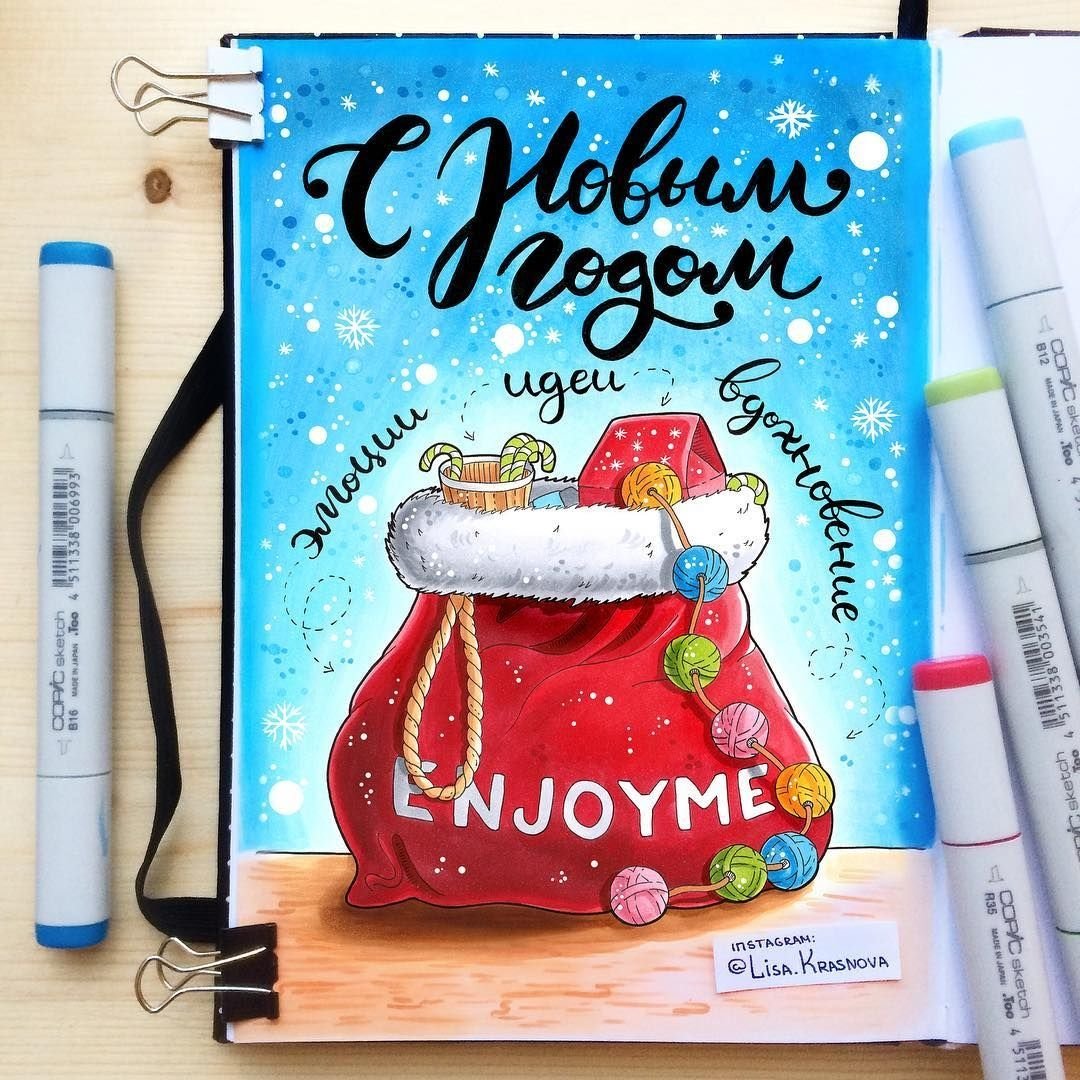 С Новым
годом
эмоции
идеи
вдохновение
ENJOYME
INSTAGRAM:
@LISA.KRASNOVA
COPIC sketch
B16 MADE IN JAPAN .Too
4 511338 006993
COPIC sketch
B12 MADE IN JAPAN
4 511338 003541
COPIC sketch
R35 MADE IN JAPAN .Too